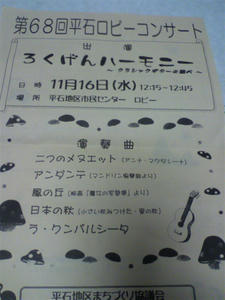 第68回平石ロビーコンサート
出演
ろくげんハーモニー
～クラシックギターの調べ～
日時 11月16日(水) 12:15～12:45
場所 平石地区市民センター ロビー
演奏曲
二つのメヌエット (アンナ・マグダレーナ)
アンダンテ (マンドリン協奏曲より)
風の丘 (映画「魔女の宅急便」より)
日本の秋 (小さい秋みつけた・里の秋)
ラ・クンパルシータ
平石地区まちづくり協議会